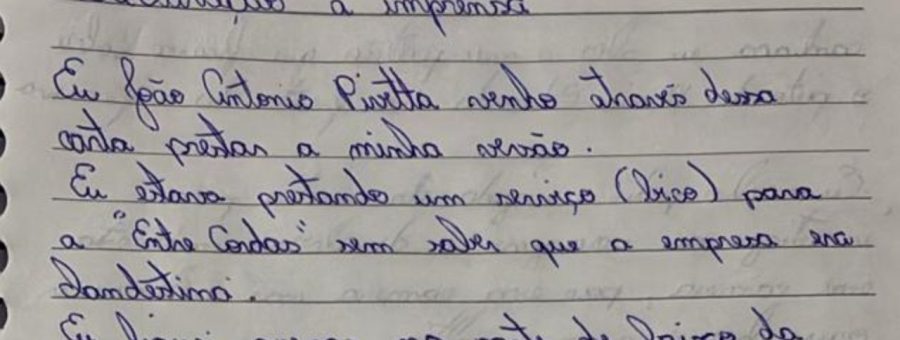 a imprensa
Eu João Antonio Pivetta venho através dessa
carta prestar a minha versão.
Eu estava prestando um serviço (bico) para
a "Entre Cordas" sem saber que a empresa era
clandestina.
Eu da